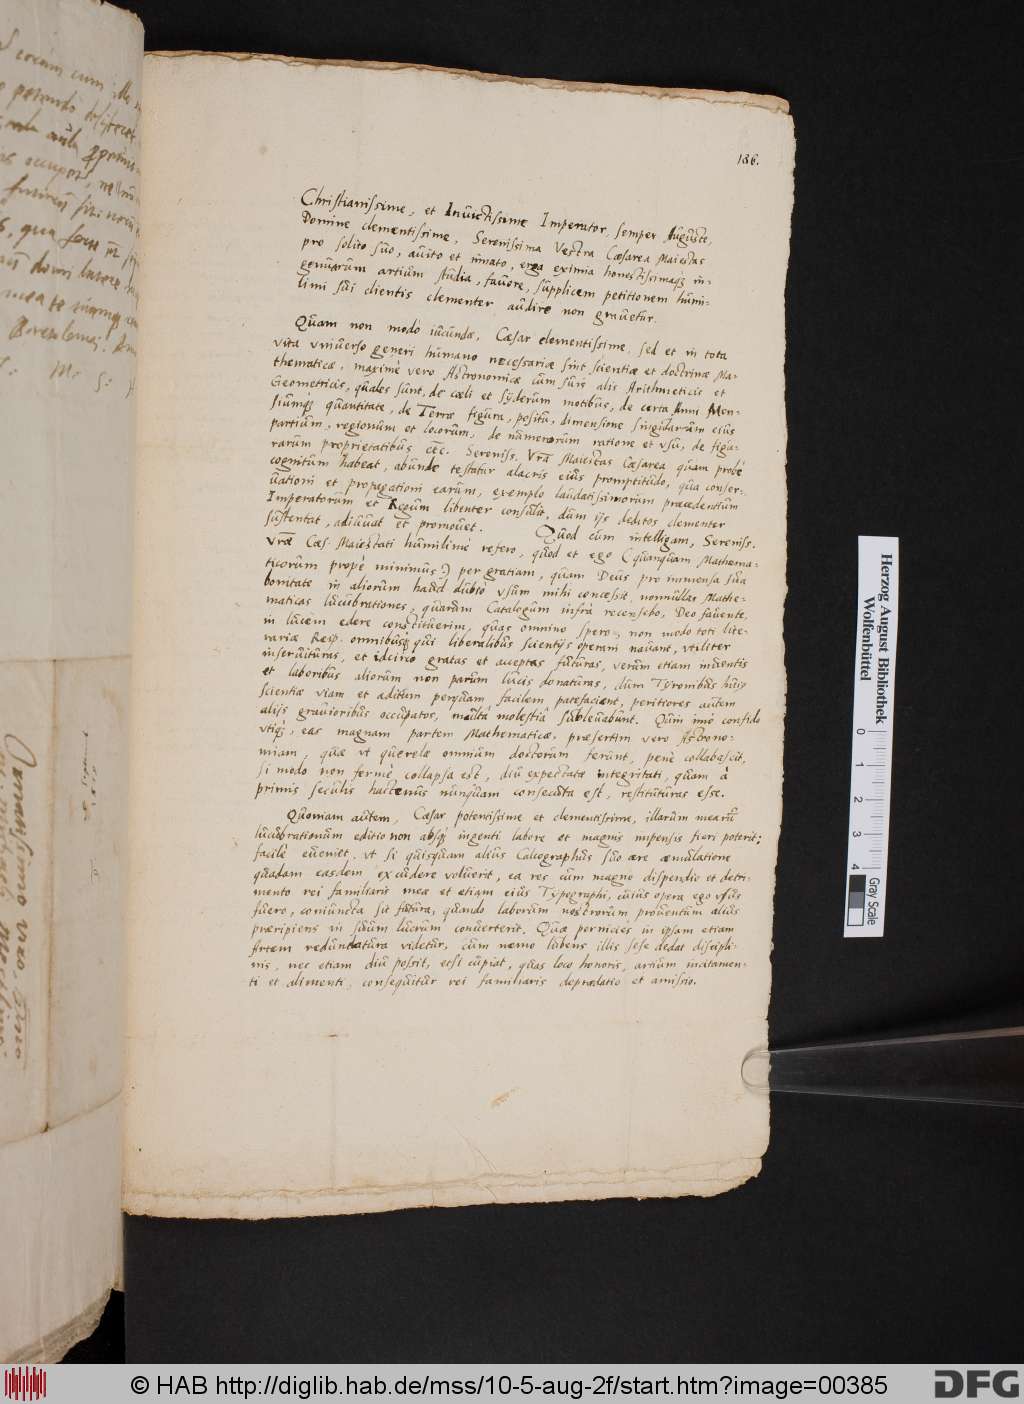 186.
Christianissime, et Invictissime Imperator, semper Auguste,
Domine clementissime, Serenissima Vestra Cæsarea Maiestas
pro solito suo, auito et innato, erga eximia honestissimaq́; in-
genuarum artium studia, fauore, supplicem petitionem humi-
limi sui clientis clementer audire non grauetur.
Quam non modo iucundæ, Cæsar clementissime, sed et in tota
vita vniuerso generi humano necessariæ sint scientiæ et doctrinæ Ma-
thematicæ, maximè vero Astronomicæ cum suis alis Arithmeticis et
Geometricis, quales sunt, de cæli et syderum motibus, de certa Anni Men-
siumq́; quantitate, de Terræ figura, positu, dimensione singularum eius
partium, regionum et locorum, de numerorum ratione et vsu, de figu-
rarum proprietatibus etc. Sereniss. Vrã Maiestas Cæsarea quam probè
cognitum habeat, abundè testatur alacris eius promptitudo, qua conser-
uationi et propagationi earum, exemplo laudatissimorum præcedentium
Imperatorum et Regum libenter consulit, dum ijs deditos clementer
sustentat, adiuuat et promouet. Quod cum intelligam, Sereniss.
Vræ Cæs. Maiestati humilimè refero, quod et ego (quanquam Mathema-
ticorum propè minimus) per gratiam, quam Deus pro immensa sua
bonitate in aliorum haud dubiò vsum mihi concessit, nonnullas Mathe-
maticas lucubrationes, quarum Catalogum infrà recensebo, Deo fauente,
in lucem edere constituerim, quas omnino spero, non modo toti lite-
rariæ Resp. omnibusq́; qui liberalibus scientijs operam nauant, vtiliter
inseruituras, et idcirco gratas et acceptas futuras, verum etiam inuentis
et laboribus aliorum non parum lucis donaturas, dum Tyronibus huius
scientiæ viam et aditum perquam facilem patefacient, peritiores autem
alijs grauioribus occupatos, multa molestia subleuabunt. Quin imò confido
vtiq́;, eas magnam partem Mathematicæ, præsertim vero Astrono-
miam, quæ vt querelæ omnium doctorum ferunt, penè collabascit,
si modò non fermè collapsa est, diu expectatæ integritati, quam à
primis seculis hactenus nunquam consecuta est, restituturas esse.
Quoniam autem, Cæsar potentissime et clementissime, illarum mearũ
lucubrationum editio non absq́; ingenti labore et magnis impensis fieri poterit;
facilè eueniet, vt si quisquam alius Calcographus suo ære æmulatione
quadam easdem excudere voluerit, ea res cum magno dispendio et detri-
mento rei familiaris meæ et etiam eius Typographi, cuius opera ego vsus
fuero, coniuncta sit futura, quando laborum nostrorum prouentum alius
præripiens in suum lucrum conuerterit. Quæ pernicies in ipsam etiam
Artem redundatura videtur, cum nemo lubens illis sese dedat discipli-
nis, nec etiam diu possit, etsi cupiat, quas loco honoris, artium incitamen-
ti et alimenti, consequitur rei familiaris deprædatio et amissio.
Herzog August Bibliothek
Wolfenbüttel
0 1 2 3 4
Gray Scale
© HAB http://diglib.hab.de/mss/10-5-aug-2f/start.htm?image=00385
DFG